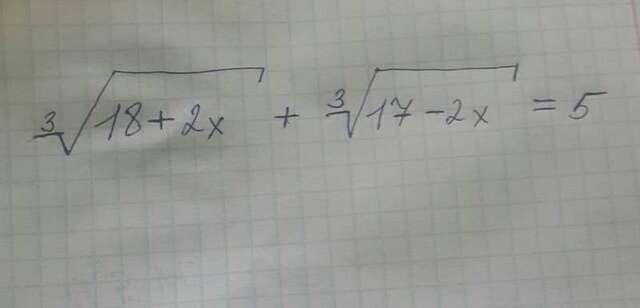 ∛(18+2x) + ∛(17-2x) = 5